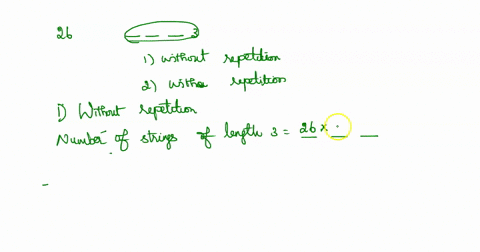 26 _ _ _ 3
1) without repetition
2) with repetition
1) Without repetition
Number of strings of length 3 = 26 ×